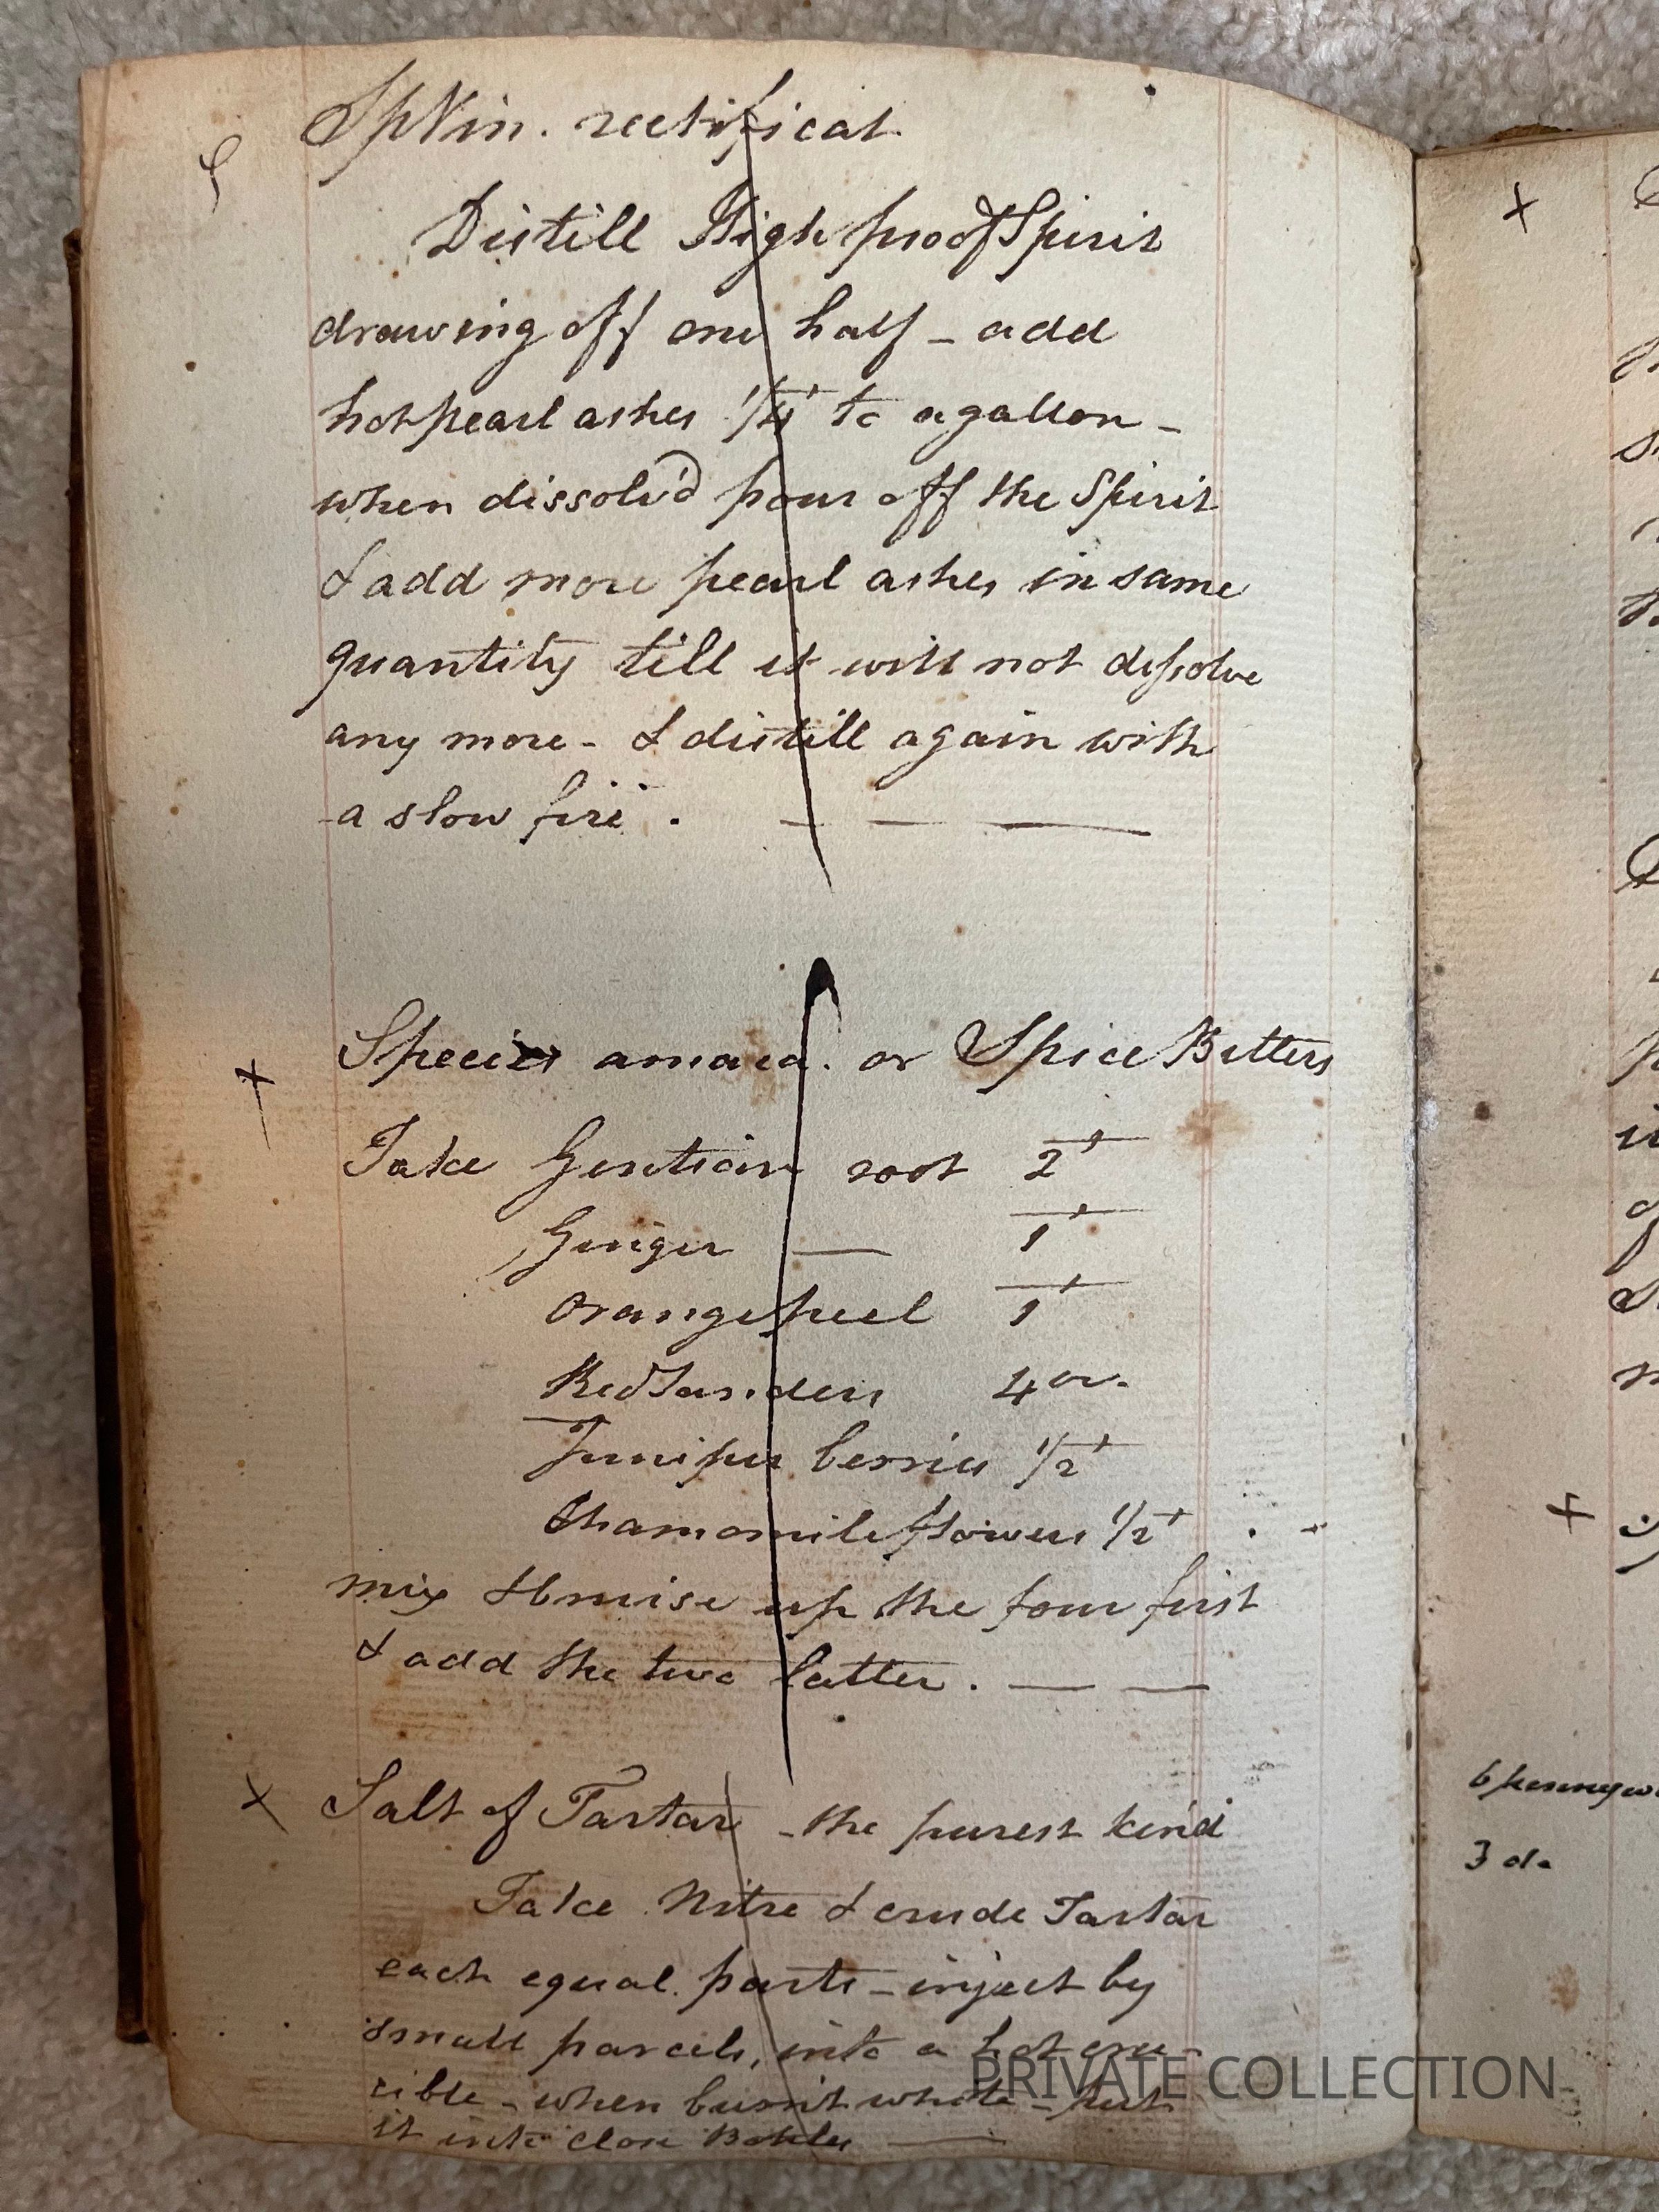 Sp Vin. rectificat.
Distill High proof Spirit
drawing off one half – add
hot pearl ashes 1/4 to a gallon –
when dissolv'd pour off the Spirit
& add more pearl ashes in same
quantity till it will not dissolve
any more – & distill again with
a slow fire.
Species amara. or Spice Bitters
Take Gentian root 2
Ginger — 1
Orange peel 1
Red Sanders 4 oz.
Juniper berries 1/2
Chamomile flowers 1/2
mix & bruise up the four first
& add the two latter. — —
Salt of Tartar – the purest kind
Take Nitre & crude Tartar
each equal parts – inject by
small parcels, into a hot cru-
cible – when burnt white – put
it into close Bottles —
6 pennyw
3 do
PRIVATE COLLECTION